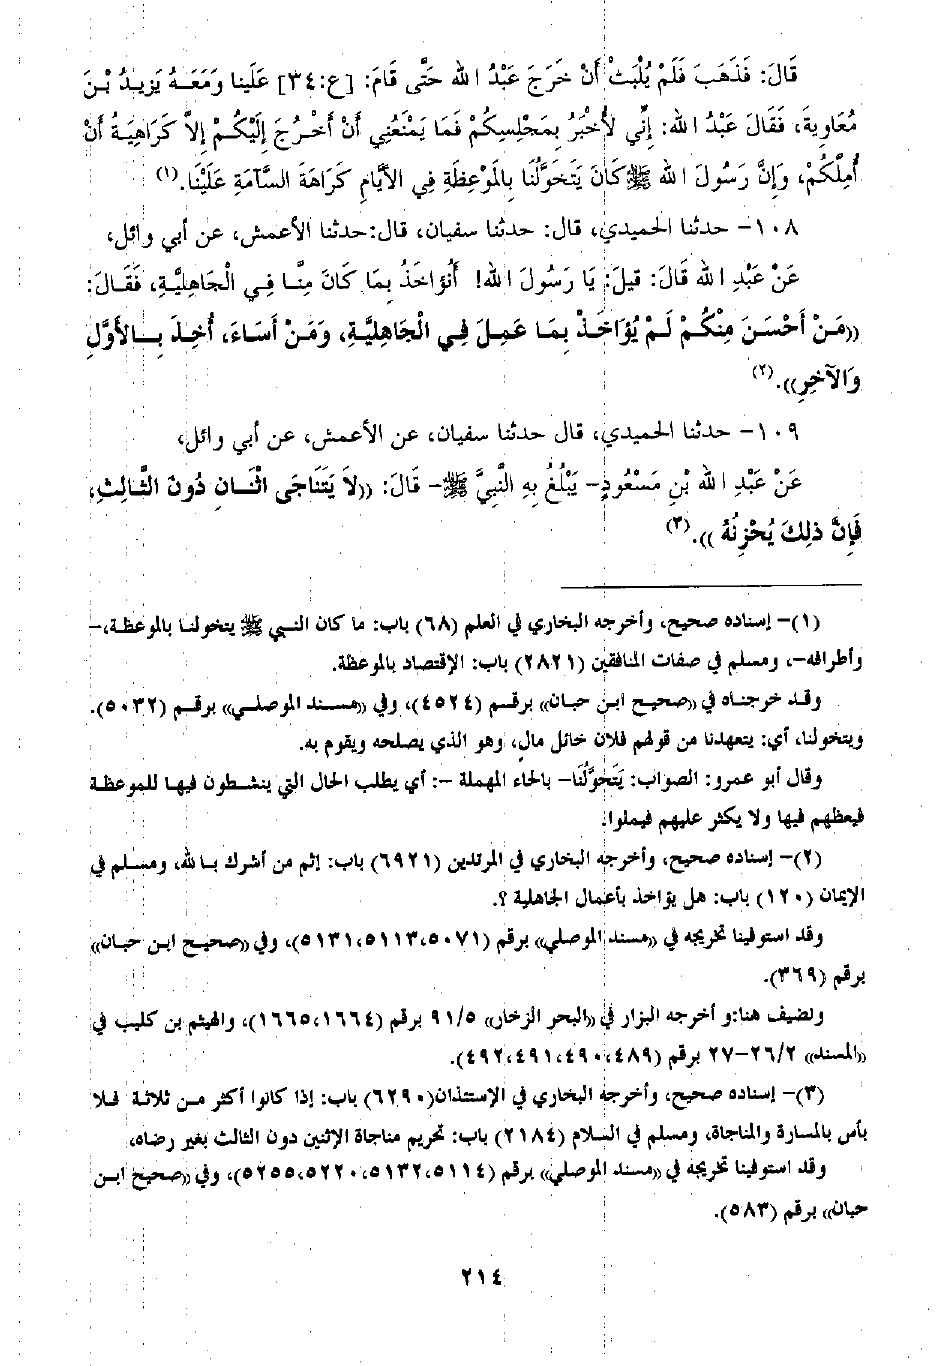 قَالَ: فَذَهَبَ فَلَمْ يُلْبَثْ أَنْ خَرَجَ عَبْدُ الله حَتَّى قَامَ: [ع:٣٤] عَلَينا وَمَعَهُ يَزِيدُ بْنَ
مُعَاوِيةَ، فَقَالَ عَبْدُ الله: إنِّي لأُخْبَرُ بِمَجْلِسِكُمْ فَمَا يَمْنَعُنِي أَنْ أَخْرُجَ إِلَيْكُمْ إلاَّ كَرَاهِيَةُ أَنْ
أُمِلَّكُمْ، وَإِنَّ رَسُولَ الله ﷺ كَانَ يَتَخَوَّلُنَا بِالمَوْعِظَةِ فِي الأَيَّامِ كَرَاهَةَ السَّآمَةِ عَلَيْنَا.(١)
١٠٨- حدثنا الحميدي، قال: حدثنا سفيان، قال:حدثنا الأعمش، عن أبي وائل،
عَنْ عَبْدِ الله قَالَ: قيلَ: يَا رَسُولَ الله! أَنُؤَاخَذُ بِمَا كَانَ مِنَّا فِي الْجَاهِلِيَّةِ، فَقَالَ:
((مَنْ أَحْسَنَ مِنْكُمْ لَمْ يُؤَاخَذْ بِمَا عَمِلَ فِي الْجَاهِلِيَّةِ، وَمَنْ أَسَاءَ، أُخِذَ بِالأَوَّلِ
وَالآخِرِ)).(٢)
١٠٩- حدثنا الحميدي، قال حدثنا سفيان، عن الأعمش، عن أبي وائل،
عَنْ عَبْدِ الله بْنِ مَسْعُودٍ- يَبْلُغُ بِهِ النَّبِيَّ ﷺ- قَالَ: ((لاَ يَتَنَاجَى اثْنَانِ دُونَ الثَّالِثِ،
فَإِنَّ ذلِكَ يُحْزِنُهُ )).(٣)
(١)- إسناده صحيح، وأخرجه البخاري في العلم (٦٨) باب: ما كان النبي ﷺ يتخولنا بالموعظة،-
وأطرافه-، ومسلم في صفات المنافقين (٢٨٢١) باب: الإقتصاد بالموعظة.
وقد خرجناه في ((صحيح ابن حبان)) برقم (٤٥٢٤)، وفي ((مسند الموصلي)) برقم (٥٠٣٢).
ويتخولنا، أي: يتعهدنا من قولهم فلان خائل مالٍ، وهو الذي يصلحه ويقوم به.
وقال أبو عمرو: الصواب: يَتَحَوَّلُنَا- بالحاء المهملة -: أي يطلب الحال التي ينشطون فيها للموعظة
فيعظهم فيها ولا يكثر عليهم فيملوا.
(٢)- إسناده صحيح، وأخرجه البخاري في المرتدين (٦٩٢١) باب: إثم من أشرك بالله، ومسلم في
الإيمان (١٢٠) باب: هل يؤاخذ بأعمال الجاهلية ؟.
وقد استوفينا تخريجه في ((مسند الموصلي)) برقم (٥٠٧١، ٥١١٣، ٥١٣١)، وفي ((صحيح ابن حبان))
برقم (٣٦٩).
ونضيف هنا:و أخرجه البزار في ((البحر الزخار)) ٩١/٥ برقم (١٦٦٤، ١٦٦٥)، والهيثم بن كليب في
((المسند)) ٢٦/٢-٢٧ برقم (٤٨٩، ٤٩٠، ٤٩١، ٤٩٢).
(٣)- إسناده صحيح، وأخرجه البخاري في الإستئذان(٦٢٩٠) باب: إذا كانوا أكثر من ثلاثة فلا
بأس بالمسارة والمناجاة، ومسلم في السلام (٢١٨٤) باب: تحريم مناجاة الإثنين دون الثالث بغير رضاه،
وقد استوفينا تخريجه في ((مسند الموصلي)) برقم (٥١١٤، ٥١٣٢، ٥٢٢٠، ٥٢٥٥)، وفي ((صحيح ابن
حبان)) برقم (٥٨٣).
٢١٤